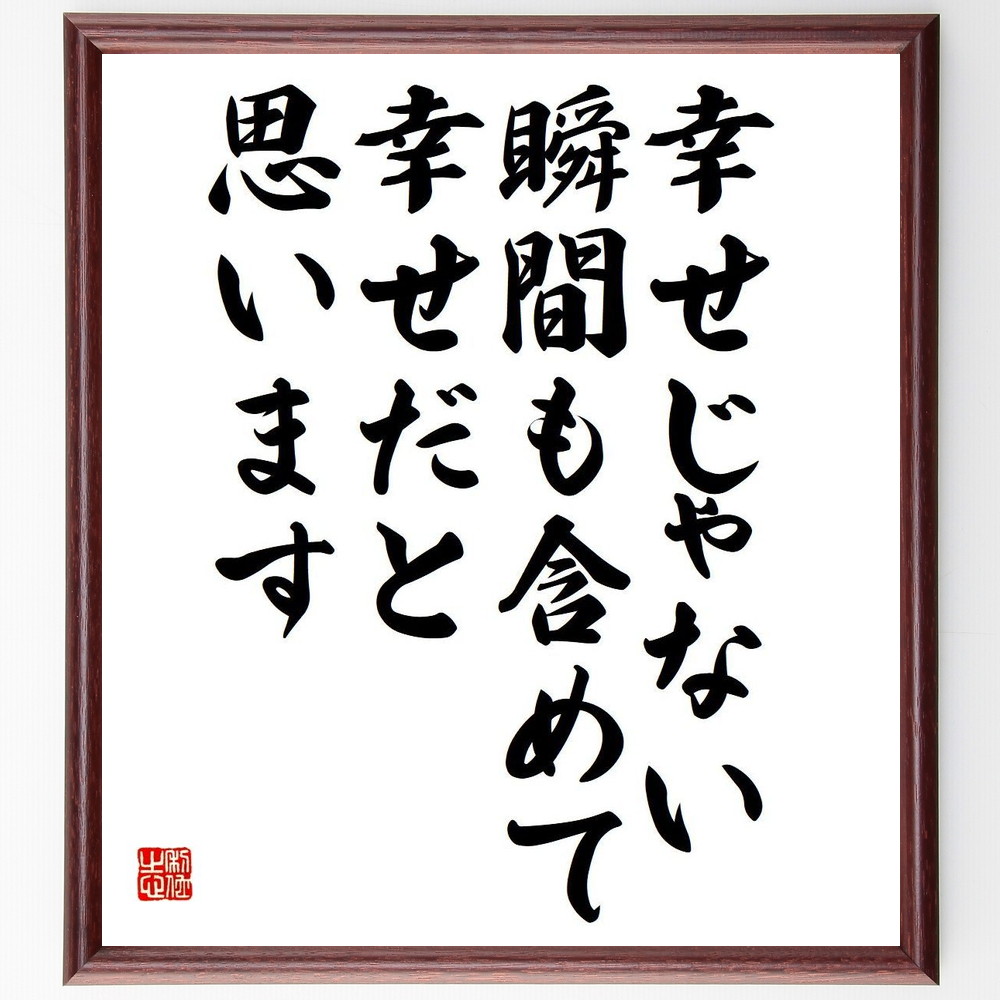 幸せじゃない
瞬間も含めて
幸せだと
思います